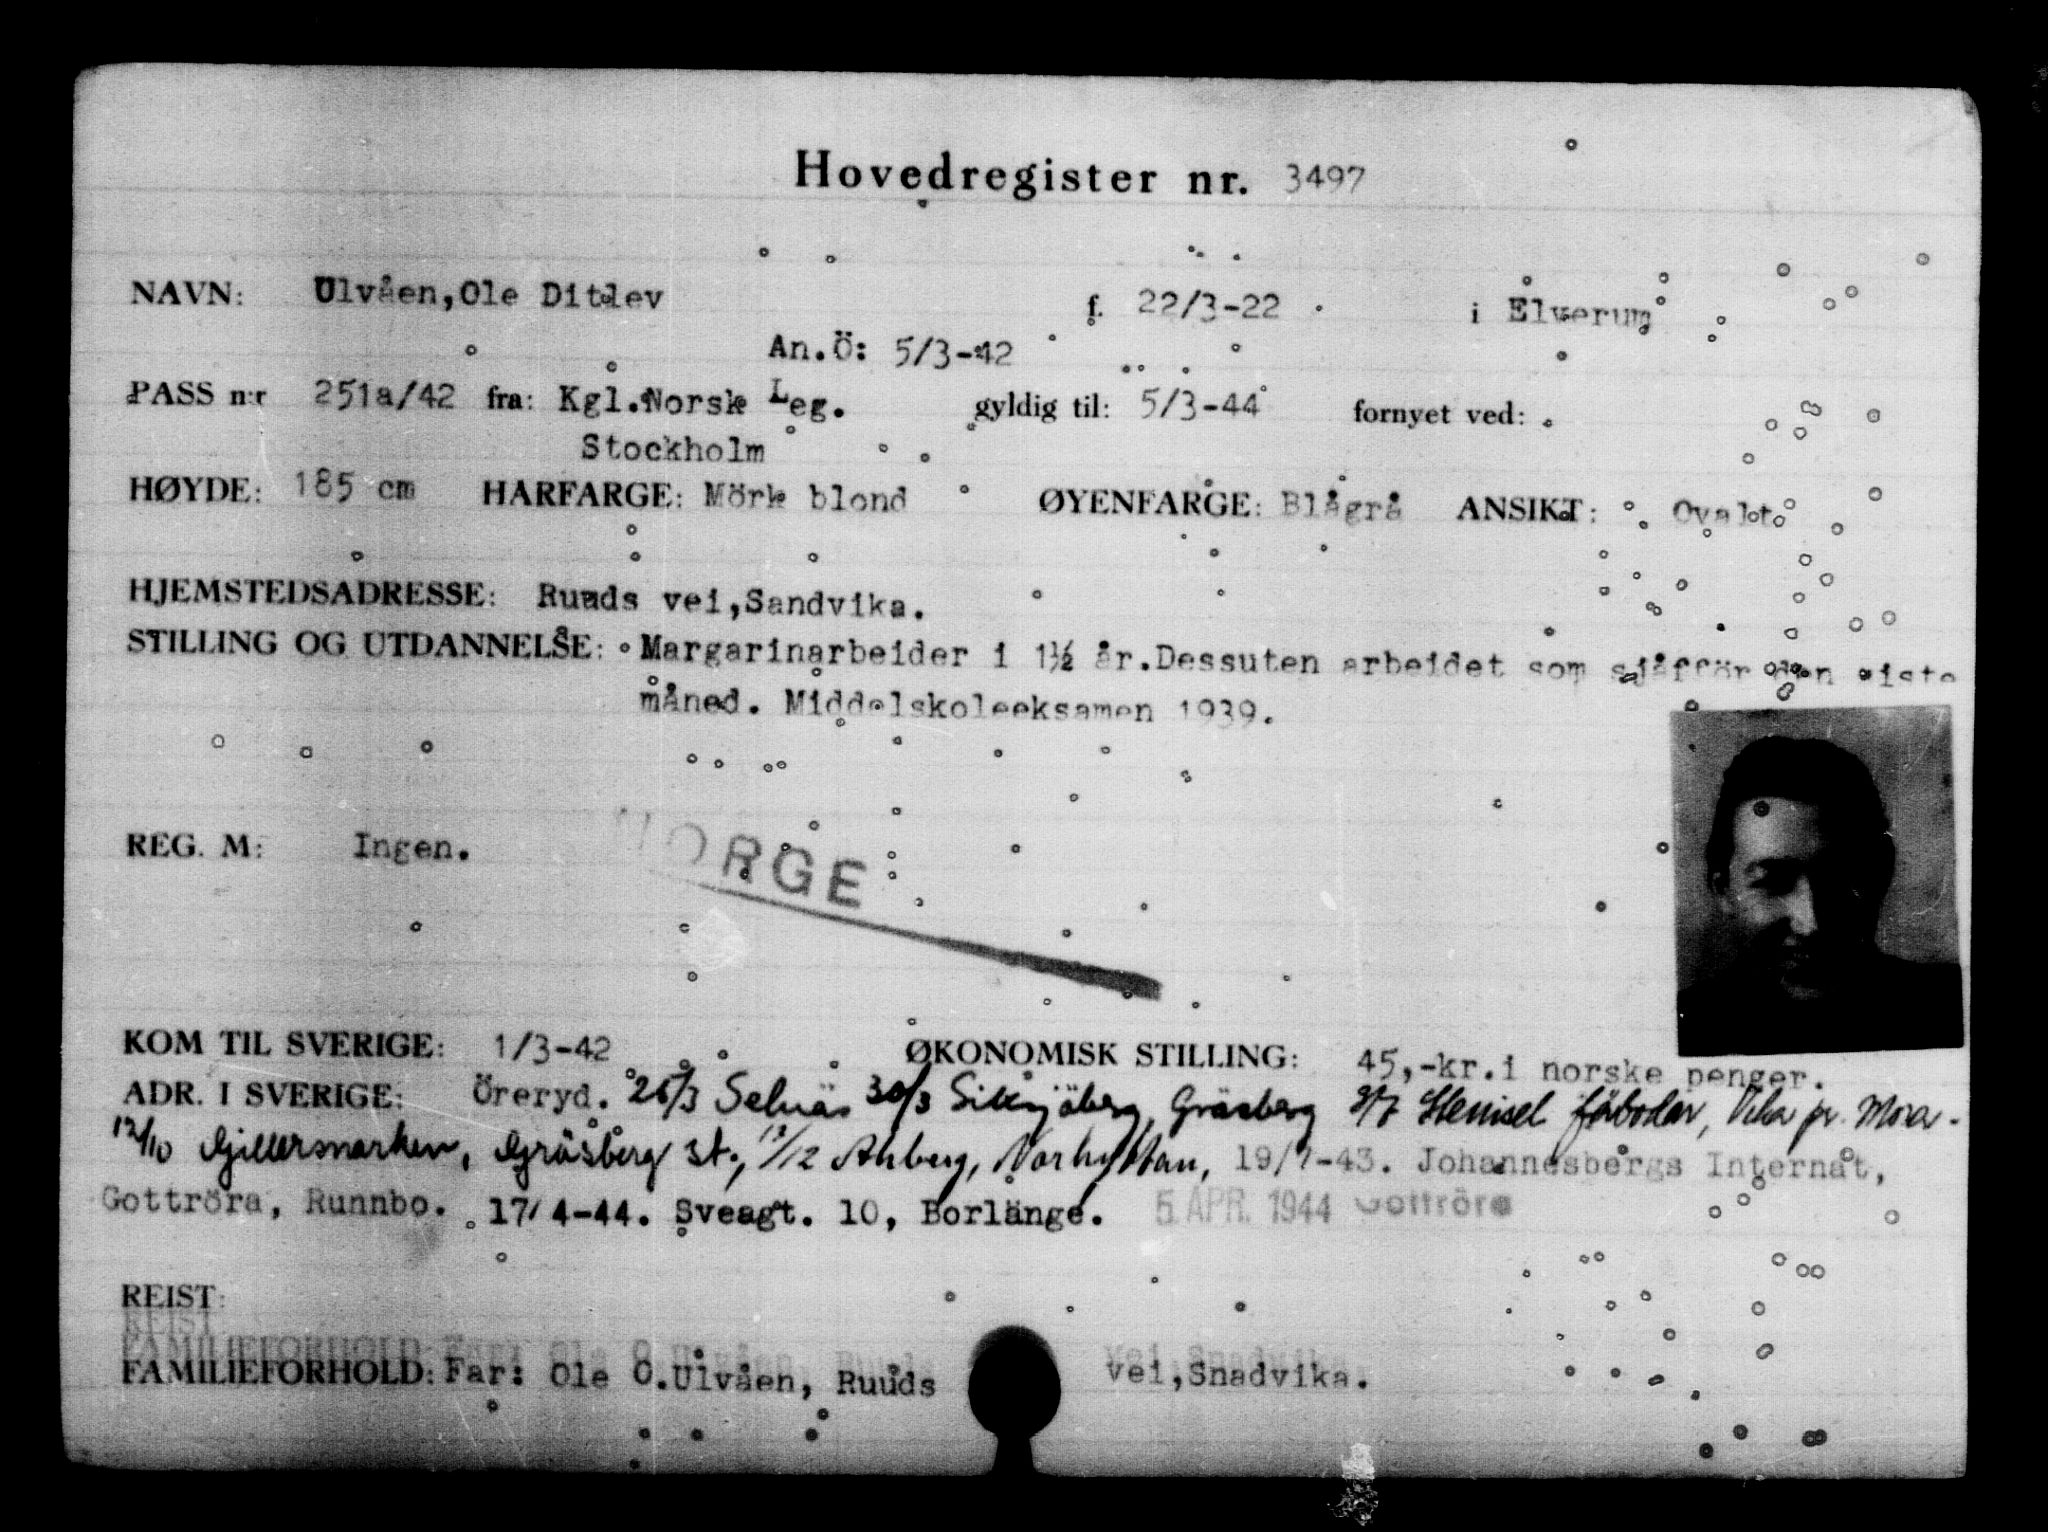 Hovedregister nr. 3497
NAVN: Ulvåen,Ole Ditlev f. 22/3-22 i Elverum
An.Ö: 5/3-42
PASS n:r 251a/42 fra: Kgl.Norsk Leg. gyldig til: 5/3-44 fornyet ved:
Stockholm
HØYDE: 185 cm HARFARGE: Mörk blond ØYENFARGE: Blågrå ANSIKT: Ovalt
HJEMSTEDSADRESSE: Ruuds vei,Sandvika.
STILLING OG UTDANNELSE: Margarinarbeider i 1½ år.Dessuten arbeidet som sjåfför den siste
måned. Middelskoleeksamen 1939.
REG. M: Ingen.
NORGE
KOM TIL SVERIGE: 1/3-42 ØKONOMISK STILLING: 45,-kr.i norske penger.
ADR. I SVERIGE: Öreryd. 25/3 Selnäs 30/3 Silksjöberg, Gräsberg Hemsel fäbodar, Vika pr. Mora.
12/10 Gjillersmarken, Gräsberg st., Ahberg, Norhyttan, 19/7-43. Johannesbergs Internat,
Gottröra, Runnbo. 17/4-44. Sveagt. 10, Borlänge. 5. APR. 1944 Gottröra
REIST:
REIST
FAMILIEFORHOLD: Far: Ole O.Ulvåen, Ruuds vei,Snadvika.